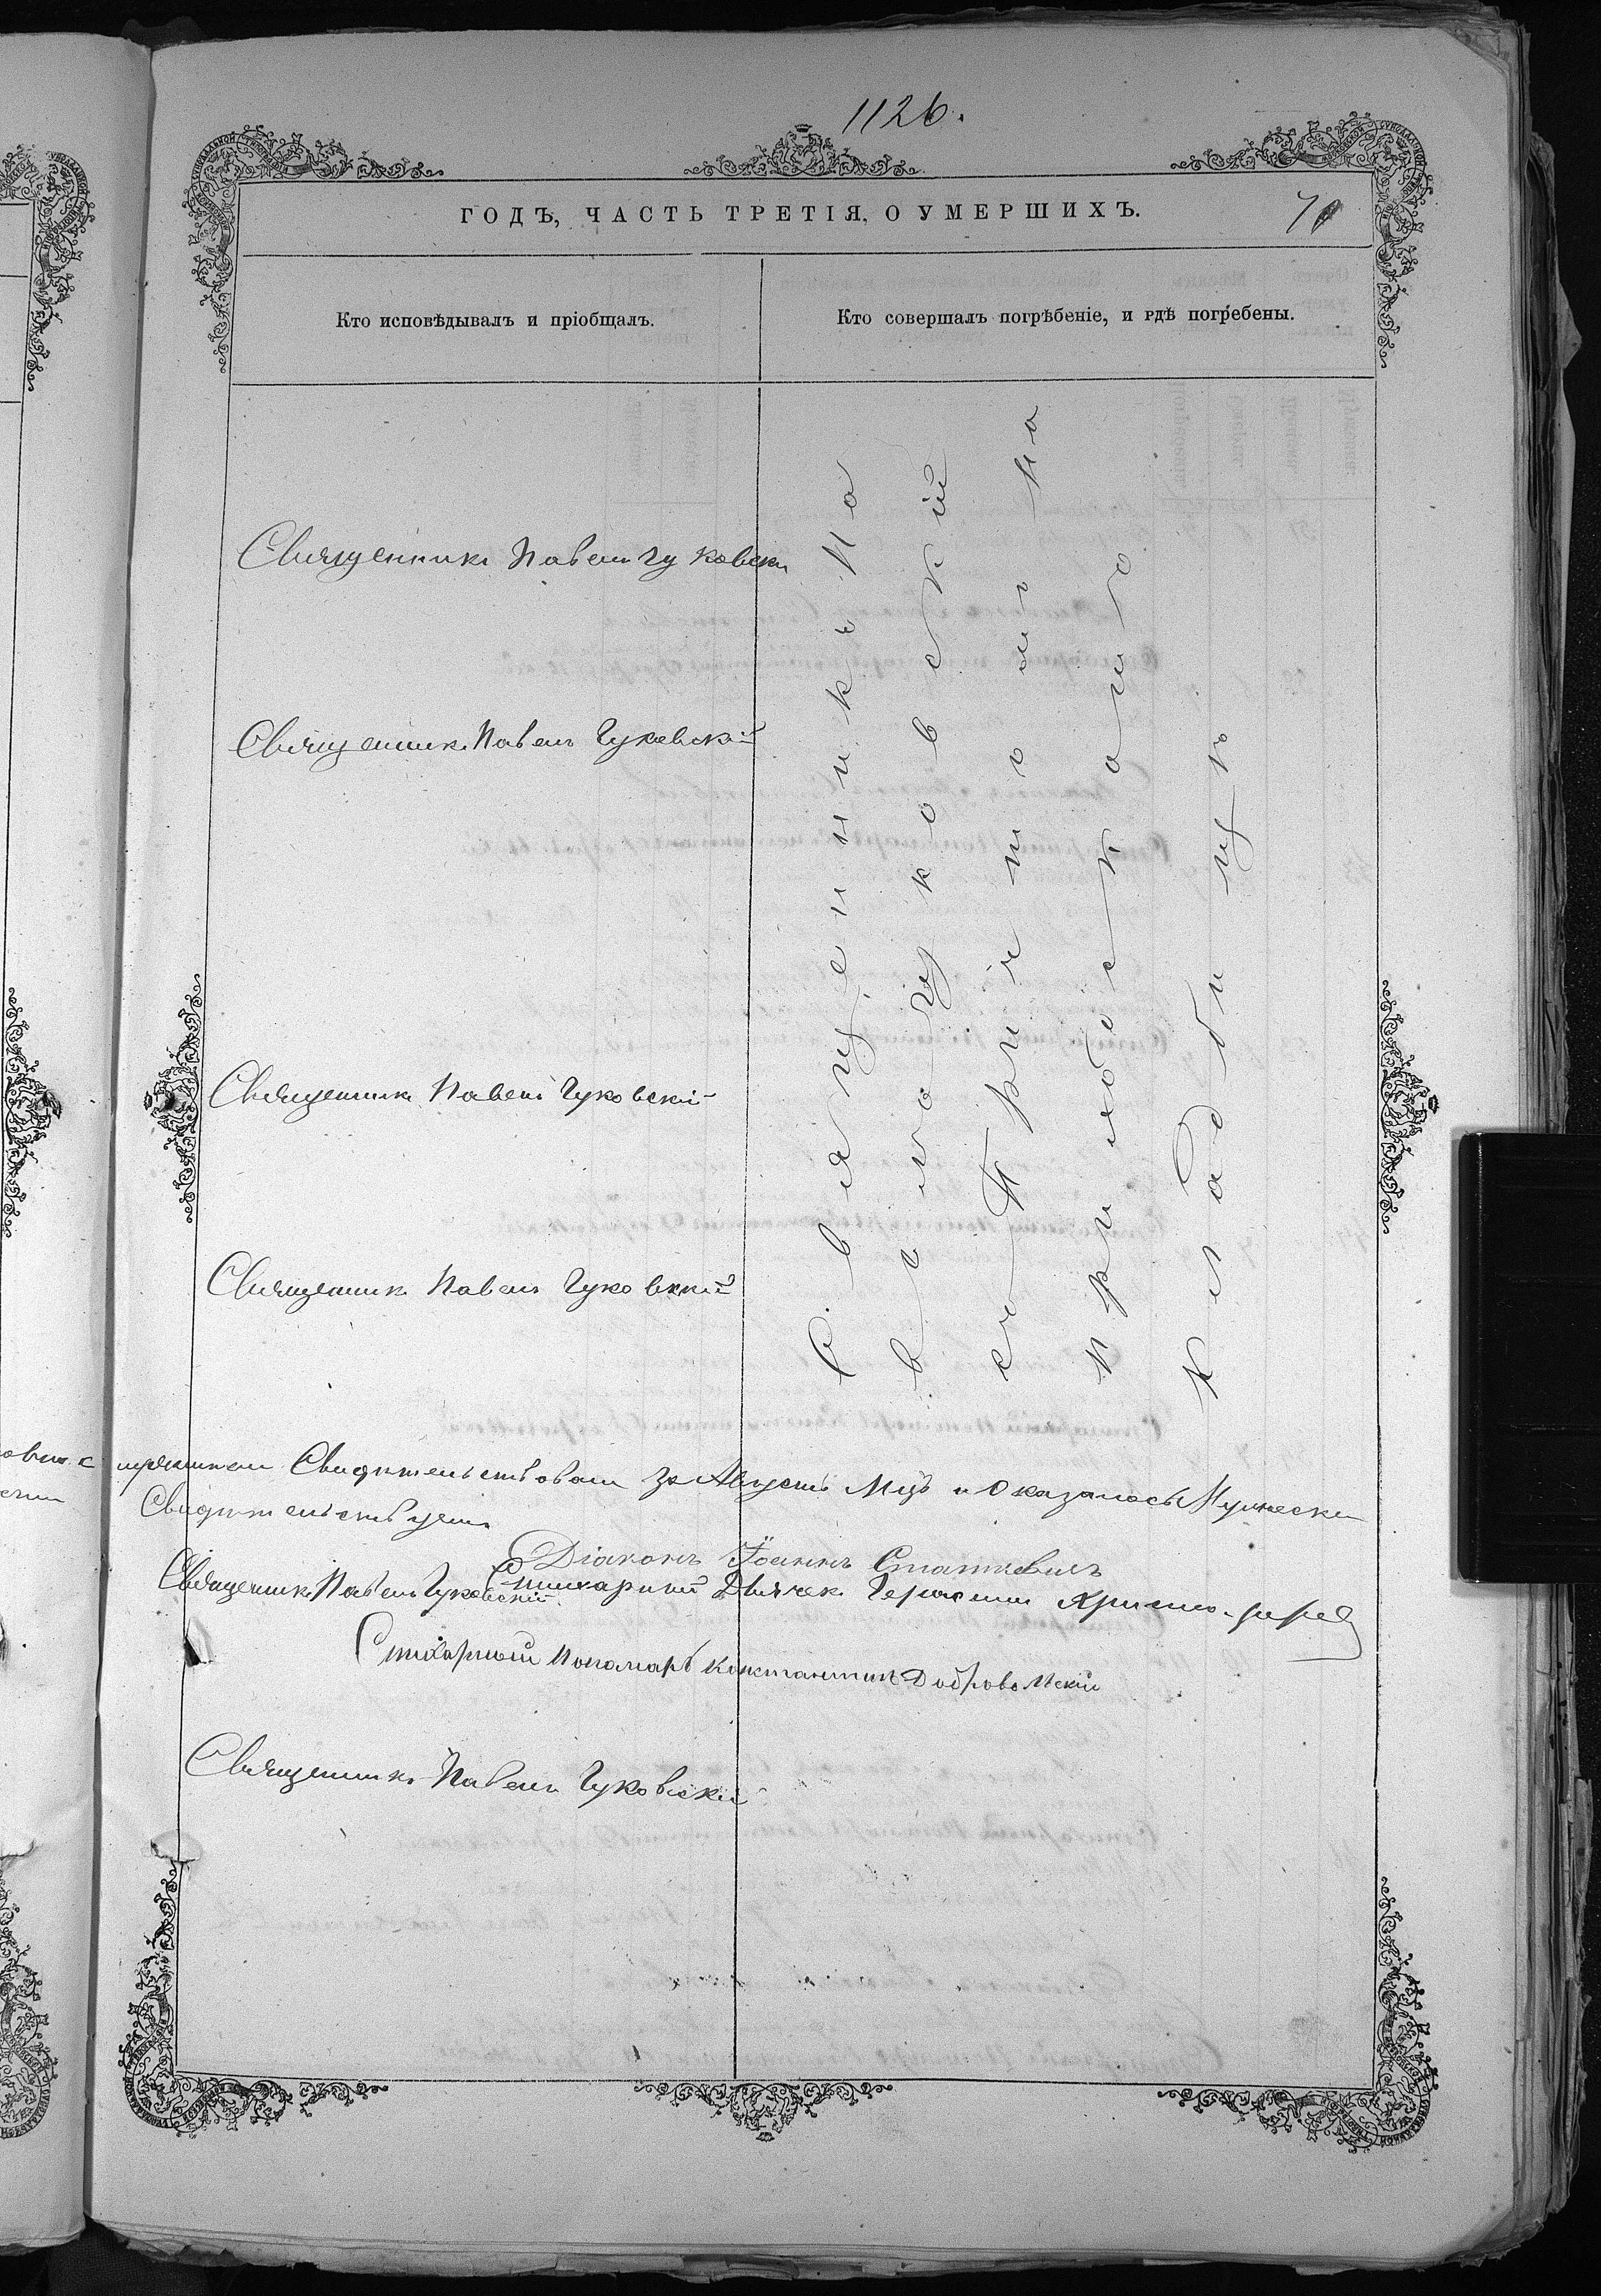 1126.
ГОДЪ, ЧАСТЬ ТРЕТІЯ, О УМЕРШИХЪ.
Кто исповѣдывалъ и пріобщалъ.
Кто совершалъ погрѣбеніе, и гдѣ погребены.
Священникъ Павелъ Чуковскі
Священникъ Павелъ Чуковскій
Священникъ Павелъ Чуковскій
Священникъ Павелъ Чуковскій
Священникъ Па
велъ Чуковскій
съ Причтомъ на
приходскомъ
кладбищѣ
Свидѣтельствовалъ за Августъ Мцъ и Оказалось
Свидѣтельствуемъ
Діаконъ Іоаннъ Статкевичъ
Священникъ Павелъ Чуковскій Стихарный Дьячек Герасим
Стихарный Пономарь Константинъ Добровольскій
Священникъ Павелъ Чуковскій